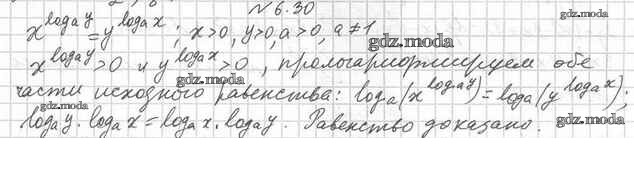 №6.30
x^log_a y = y^log_a x ; x>0, y>0, a>0, a≠1
gdz.moda
x^log_a y >0 и y^log_a x >0, прологарифмируем обе
gdz.moda
gdz.moda
части исходного равенства: log_a(x^log_a y) = log_a(y^log_a x);
gdz.moda
log_a y · log_a x = log_a x · log_a y. Равенство доказано.
gdz.moda